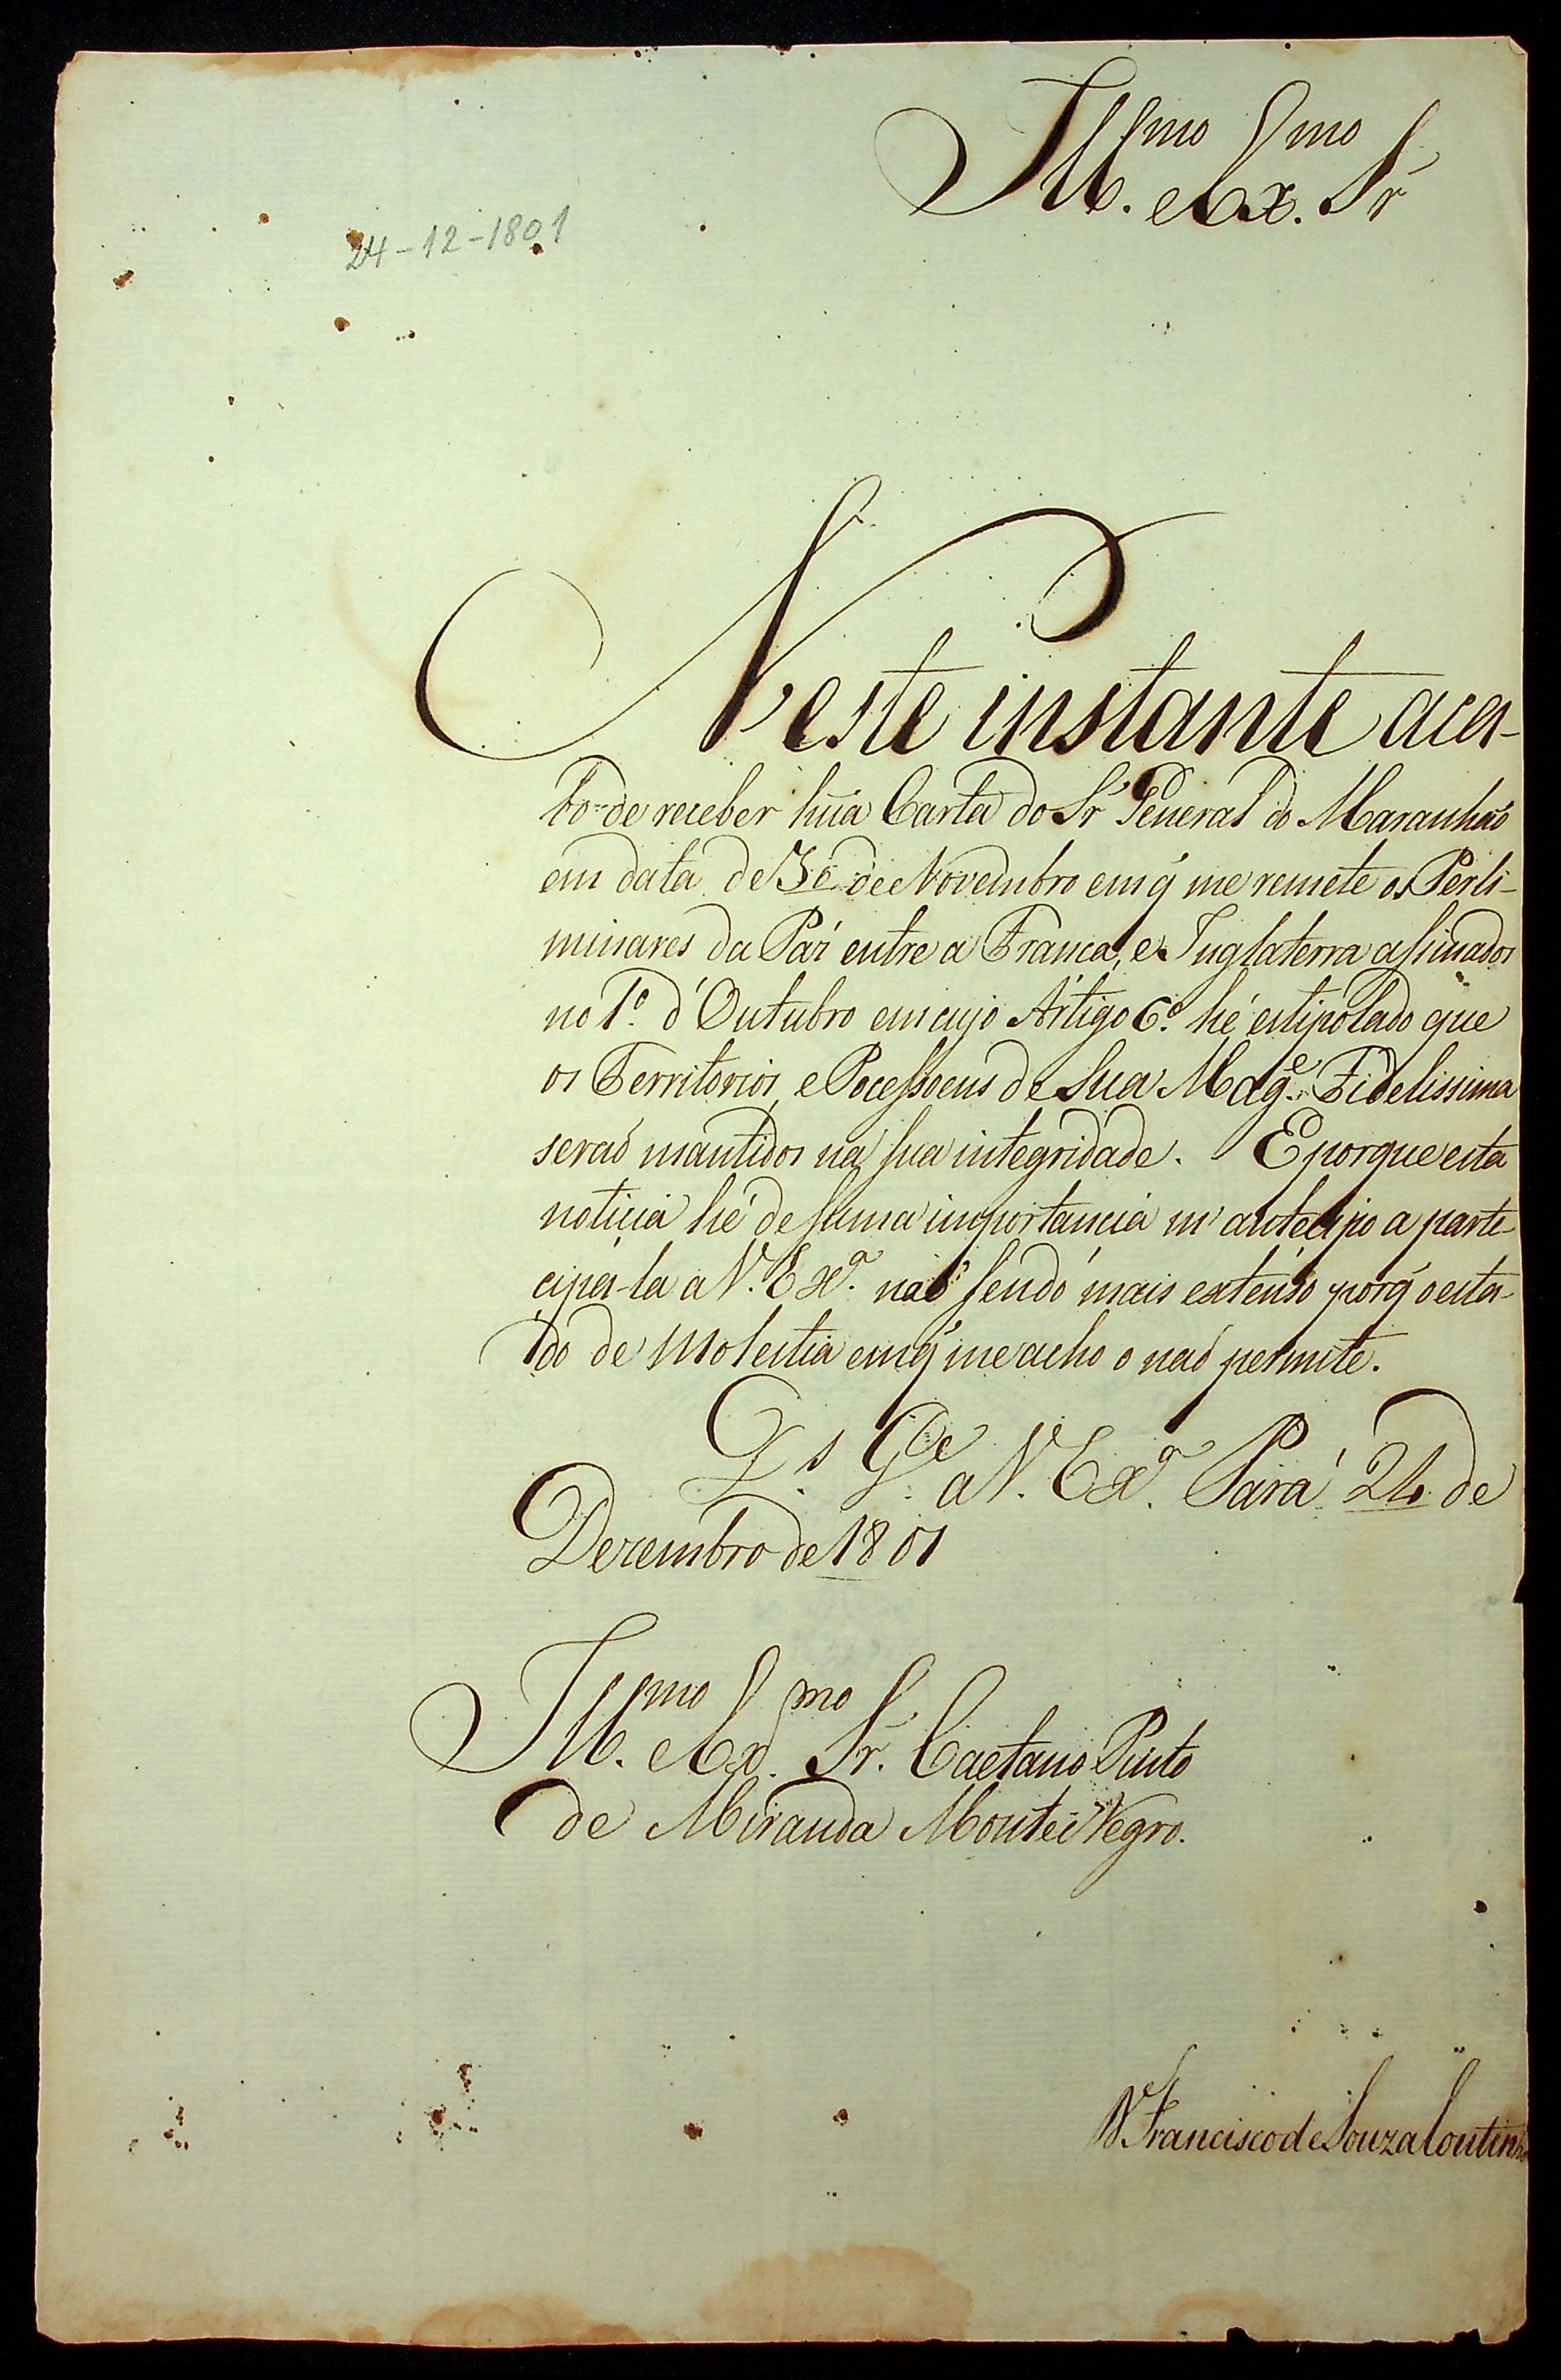 Ill.mo e Ex.mo Sr
24-12-1801
Neste instante aca-
bo de receber hũa Carta do Sr General do Maranhaõ
em data de de Novembro em q̃ me remete os Perli-
minares da Paz entre a Franca, e Inglaterra assinados
no 1.º d'Outubro em cujo Artigo 6.º hé estipolado que
os Territorios, e Pocessoens de Sua Mag.e Fidelissima
seraõ mantidos na sua integridade. E porque esta
noticia hé de suma importancia m'antecipo a parte-
cipá-la a V. Ex.ª naõ sendo mais extenso porq̃ o esta-
do de molestia em q̃ me acho o naõ permite.
D.s G.de a V. Ex.ª Pará 24 de
Dezembro de 1801
Ill.mo e Ex.mo Sr. Caetano Pinto
de Miranda Monte Negro.
D. Francisco de Souza Coutinho